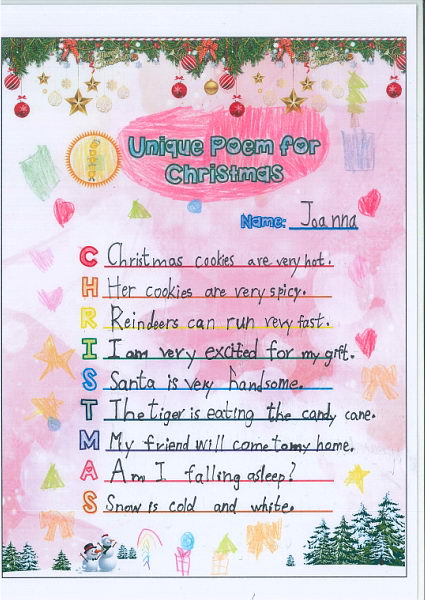 Unique Poem for
Christmas
Name: Joanna
C Christmas cookies are very hot.
H Her cookies are very spicy.
R Reindeers can run very fast.
I I am very excited for my gift.
S Santa is very handsome.
T The tiger is eating the candy cane.
M My friend will come to my home.
A Am I falling asleep?
S Snow is cold and white.